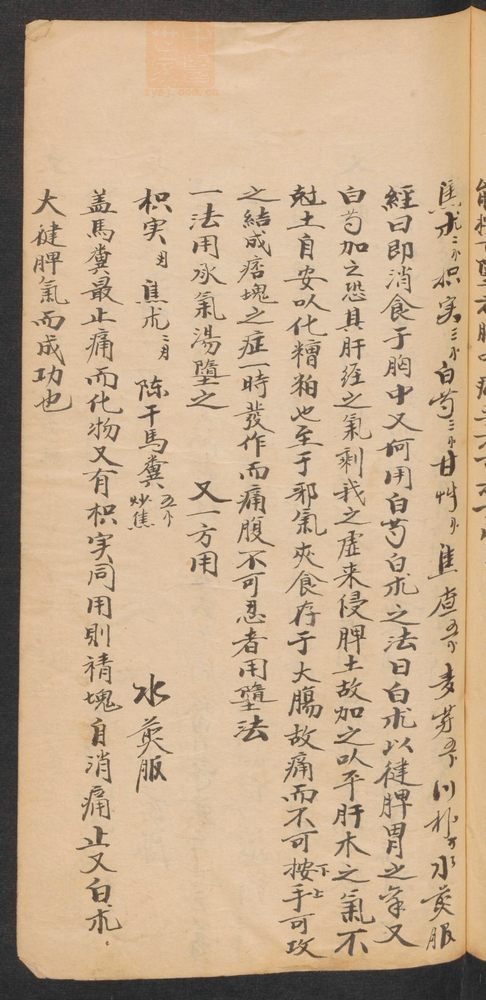 焦朮二 枳实三 白芍三 甘艸 焦查五 麦芽五 川朴 水煎服
經曰即消食于胸中又何用白芍白朮之法曰白朮以健脾胃之氣又
白芍加之恐其肝經之氣剩我之虛来侵脾土故加之以平肝木之氣不
尅土自安以化糟粕也至于邪氣夾食存于大膓故痛而不可按下手上可攻
之結成痞塊之症一時發作而痛腹不可忍者用墮法
一法用承氣湯墮之 又一方用
枳实 焦朮二 陈干馬糞五 炒焦 水煎服
盖馬糞最止痛而化物又有枳实同用則積塊自消痛止又白朮
大健脾氣而成功也